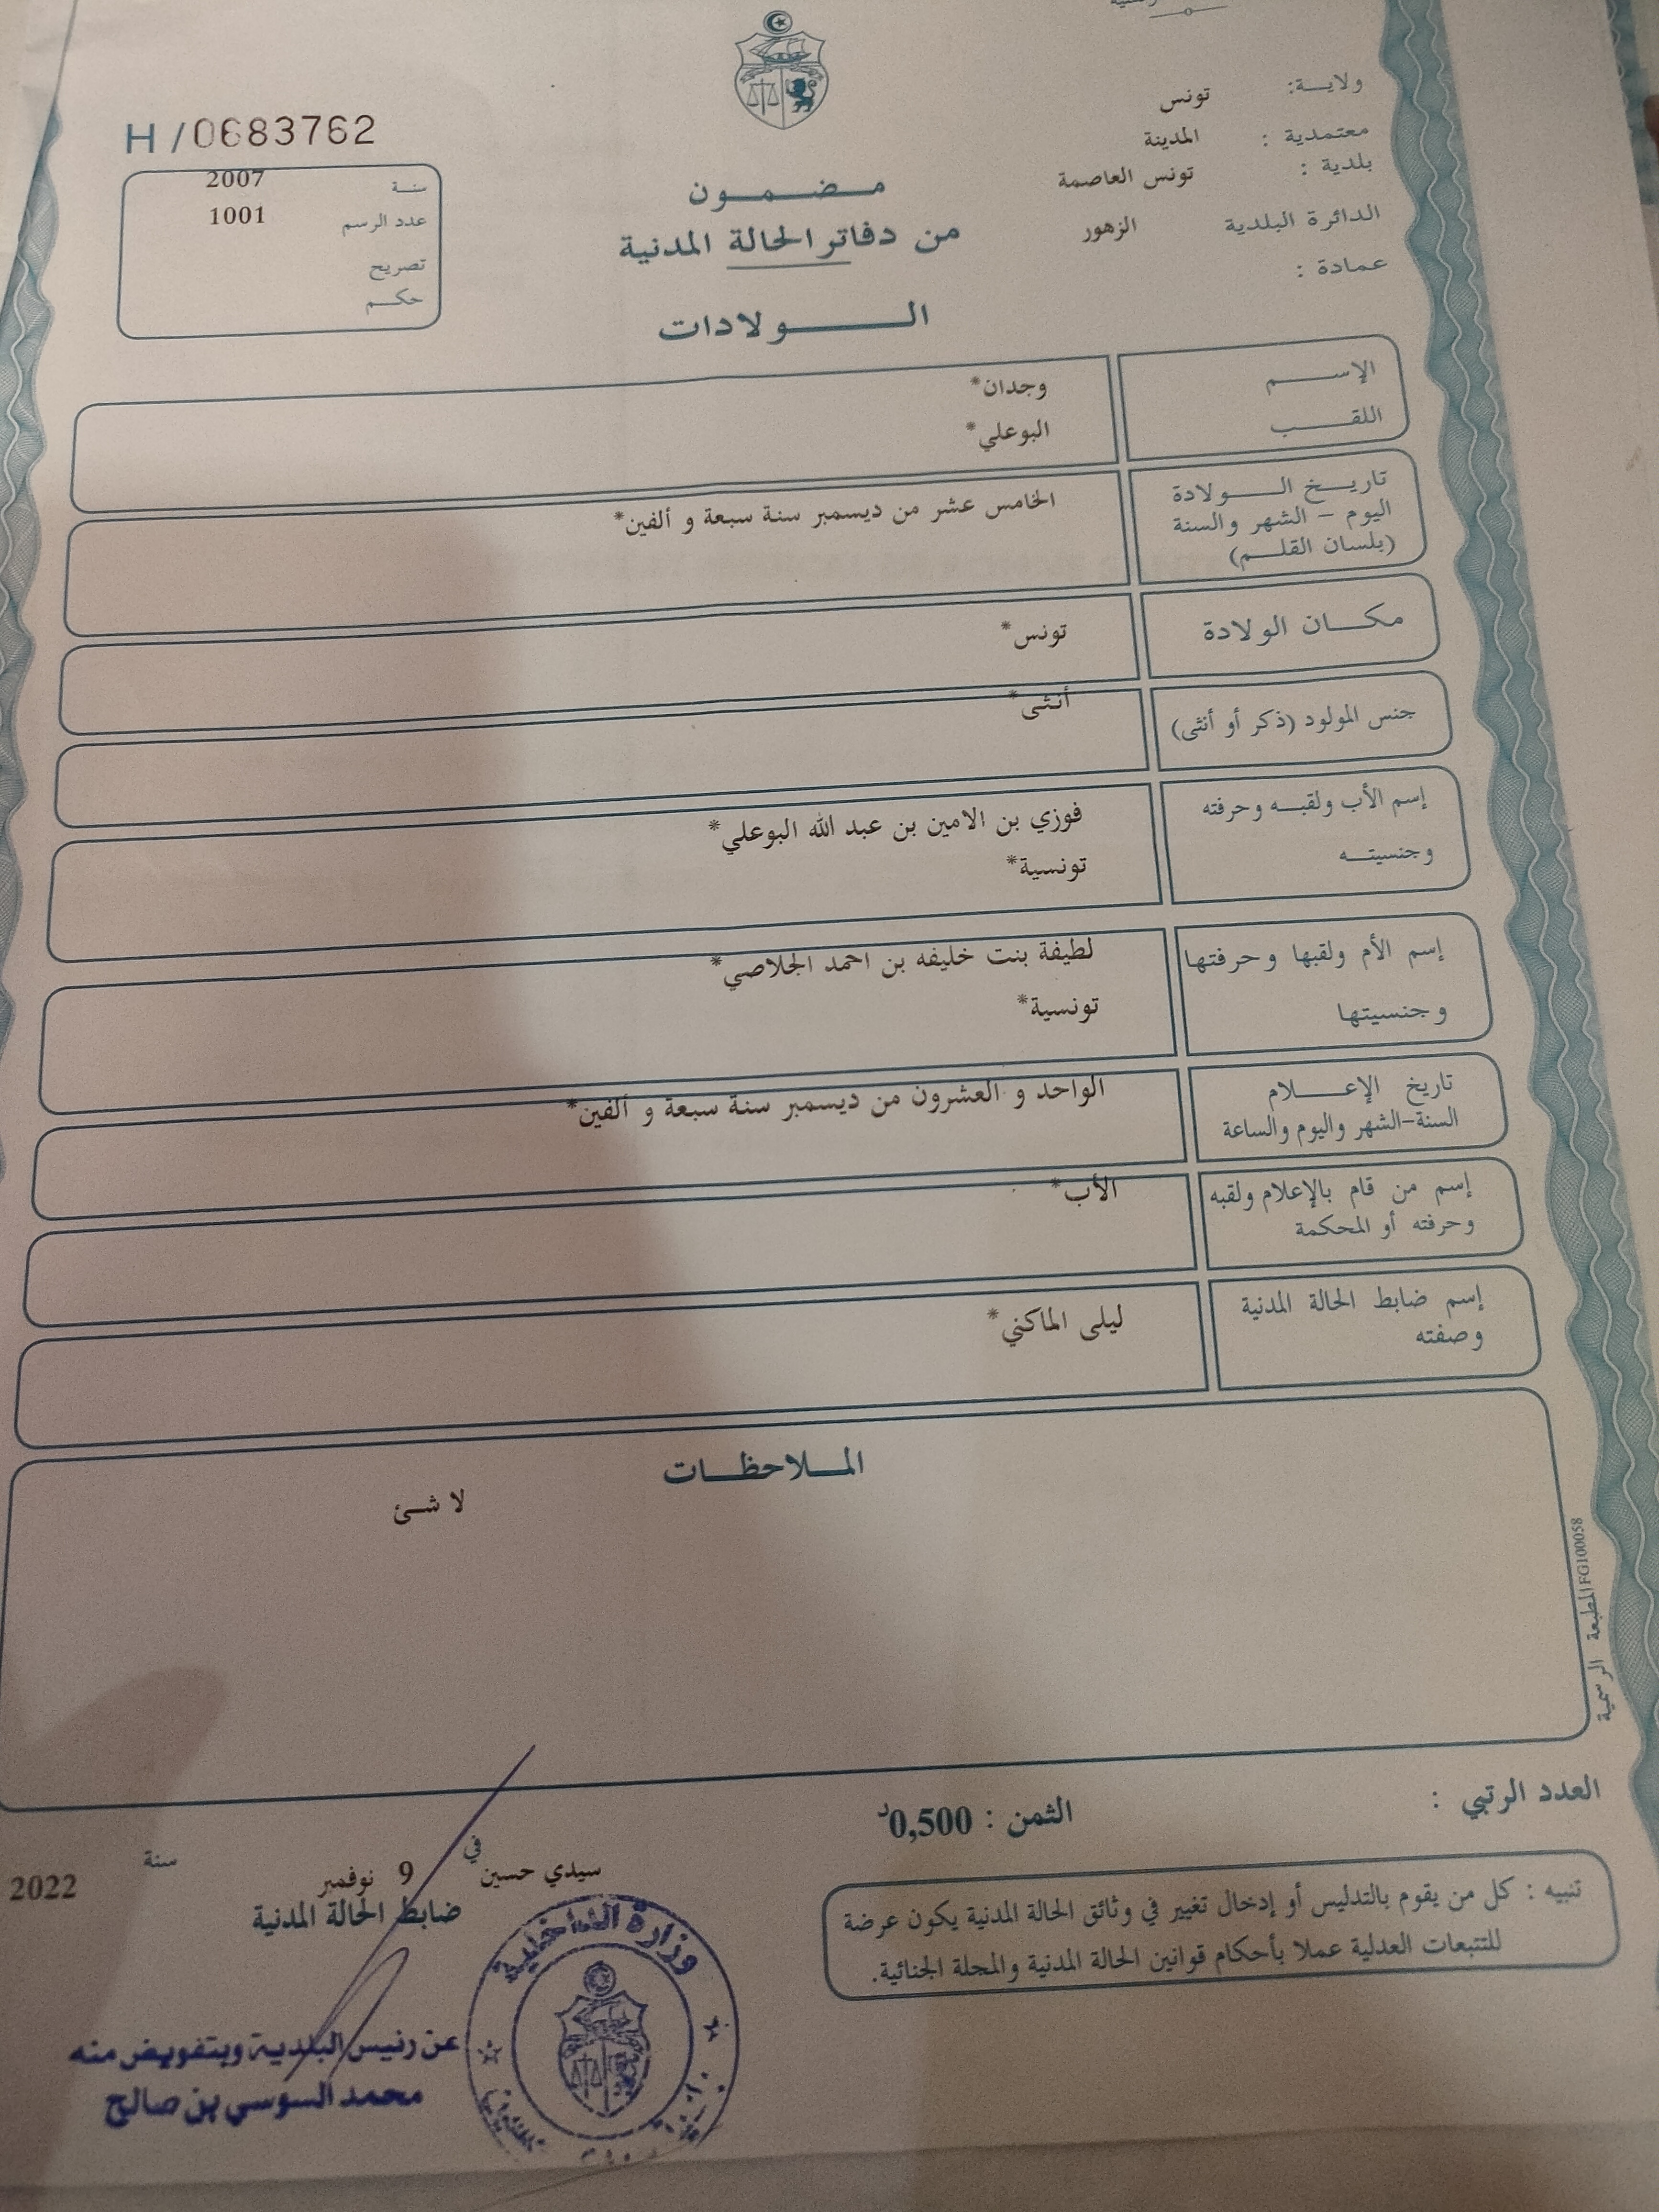 ولاية: تونس
معتمدية : المدينة
بلدية : تونس العاصمة
الدائرة البلدية الزهور
عمادة :
مضمون
من دفاتر الحالة المدنية
الولادات
H /0683762
سنة 2007
عدد الرسم 1001
تصريح
حكم
الإسم وجدان*
اللقب البوعلي*
تاريخ الولادة
اليوم - الشهر والسنة
(بلسان القلم)
الخامس عشر من ديسمبر سنة سبعة و ألفين*
مكان الولادة تونس*
جنس المولود (ذكر أو أنثى) أنثى*
إسم الأب ولقبه وحرفته فوزي بن الامين بن عبد الله البوعلي*
وجنسيته تونسية*
إسم الأم ولقبها وحرفتها لطيفة بنت خليفه بن احمد الجلاصي*
وجنسيتها تونسية*
تاريخ الإعلام
السنة-الشهر واليوم والساعة
الواحد و العشرون من ديسمبر سنة سبعة و ألفين*
إسم من قام بالإعلام ولقبه
وحرفته أو المحكمة
الأب*
إسم ضابط الحالة المدنية
وصفته
ليلى الماكني*
الملاحظات
لا شئ
المطبعة الرسمية FG100058
العدد الرتبي :
الثمن : 0,500د
تنبيه : كل من يقوم بالتدليس أو إدخال تغيير في وثائق الحالة المدنية يكون عرضة
للتتبعات العدلية عملا بأحكام قوانين الحالة المدنية والمجلة الجنائية.
سيدي حسين في 9 نوفمبر سنة 2022
ضابط الحالة المدنية
وزارة الداخلية
عن رئيس البلدية وبتفويض منه
محمد السوسي بن صالح